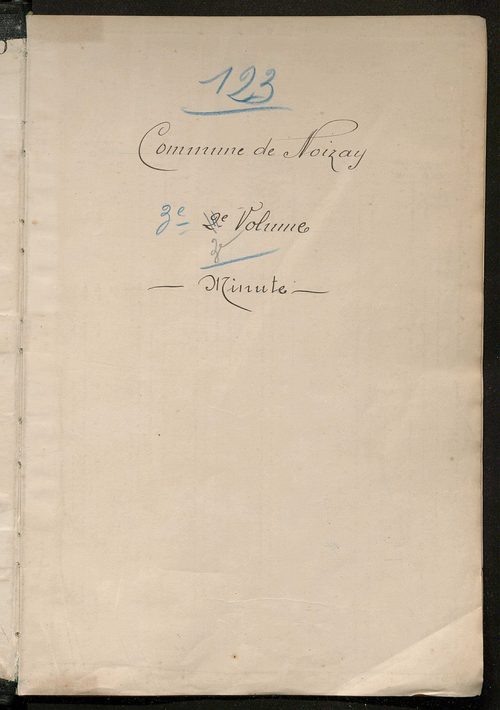 123
Commune de Noizay
3e 2e Volume
3
Minute